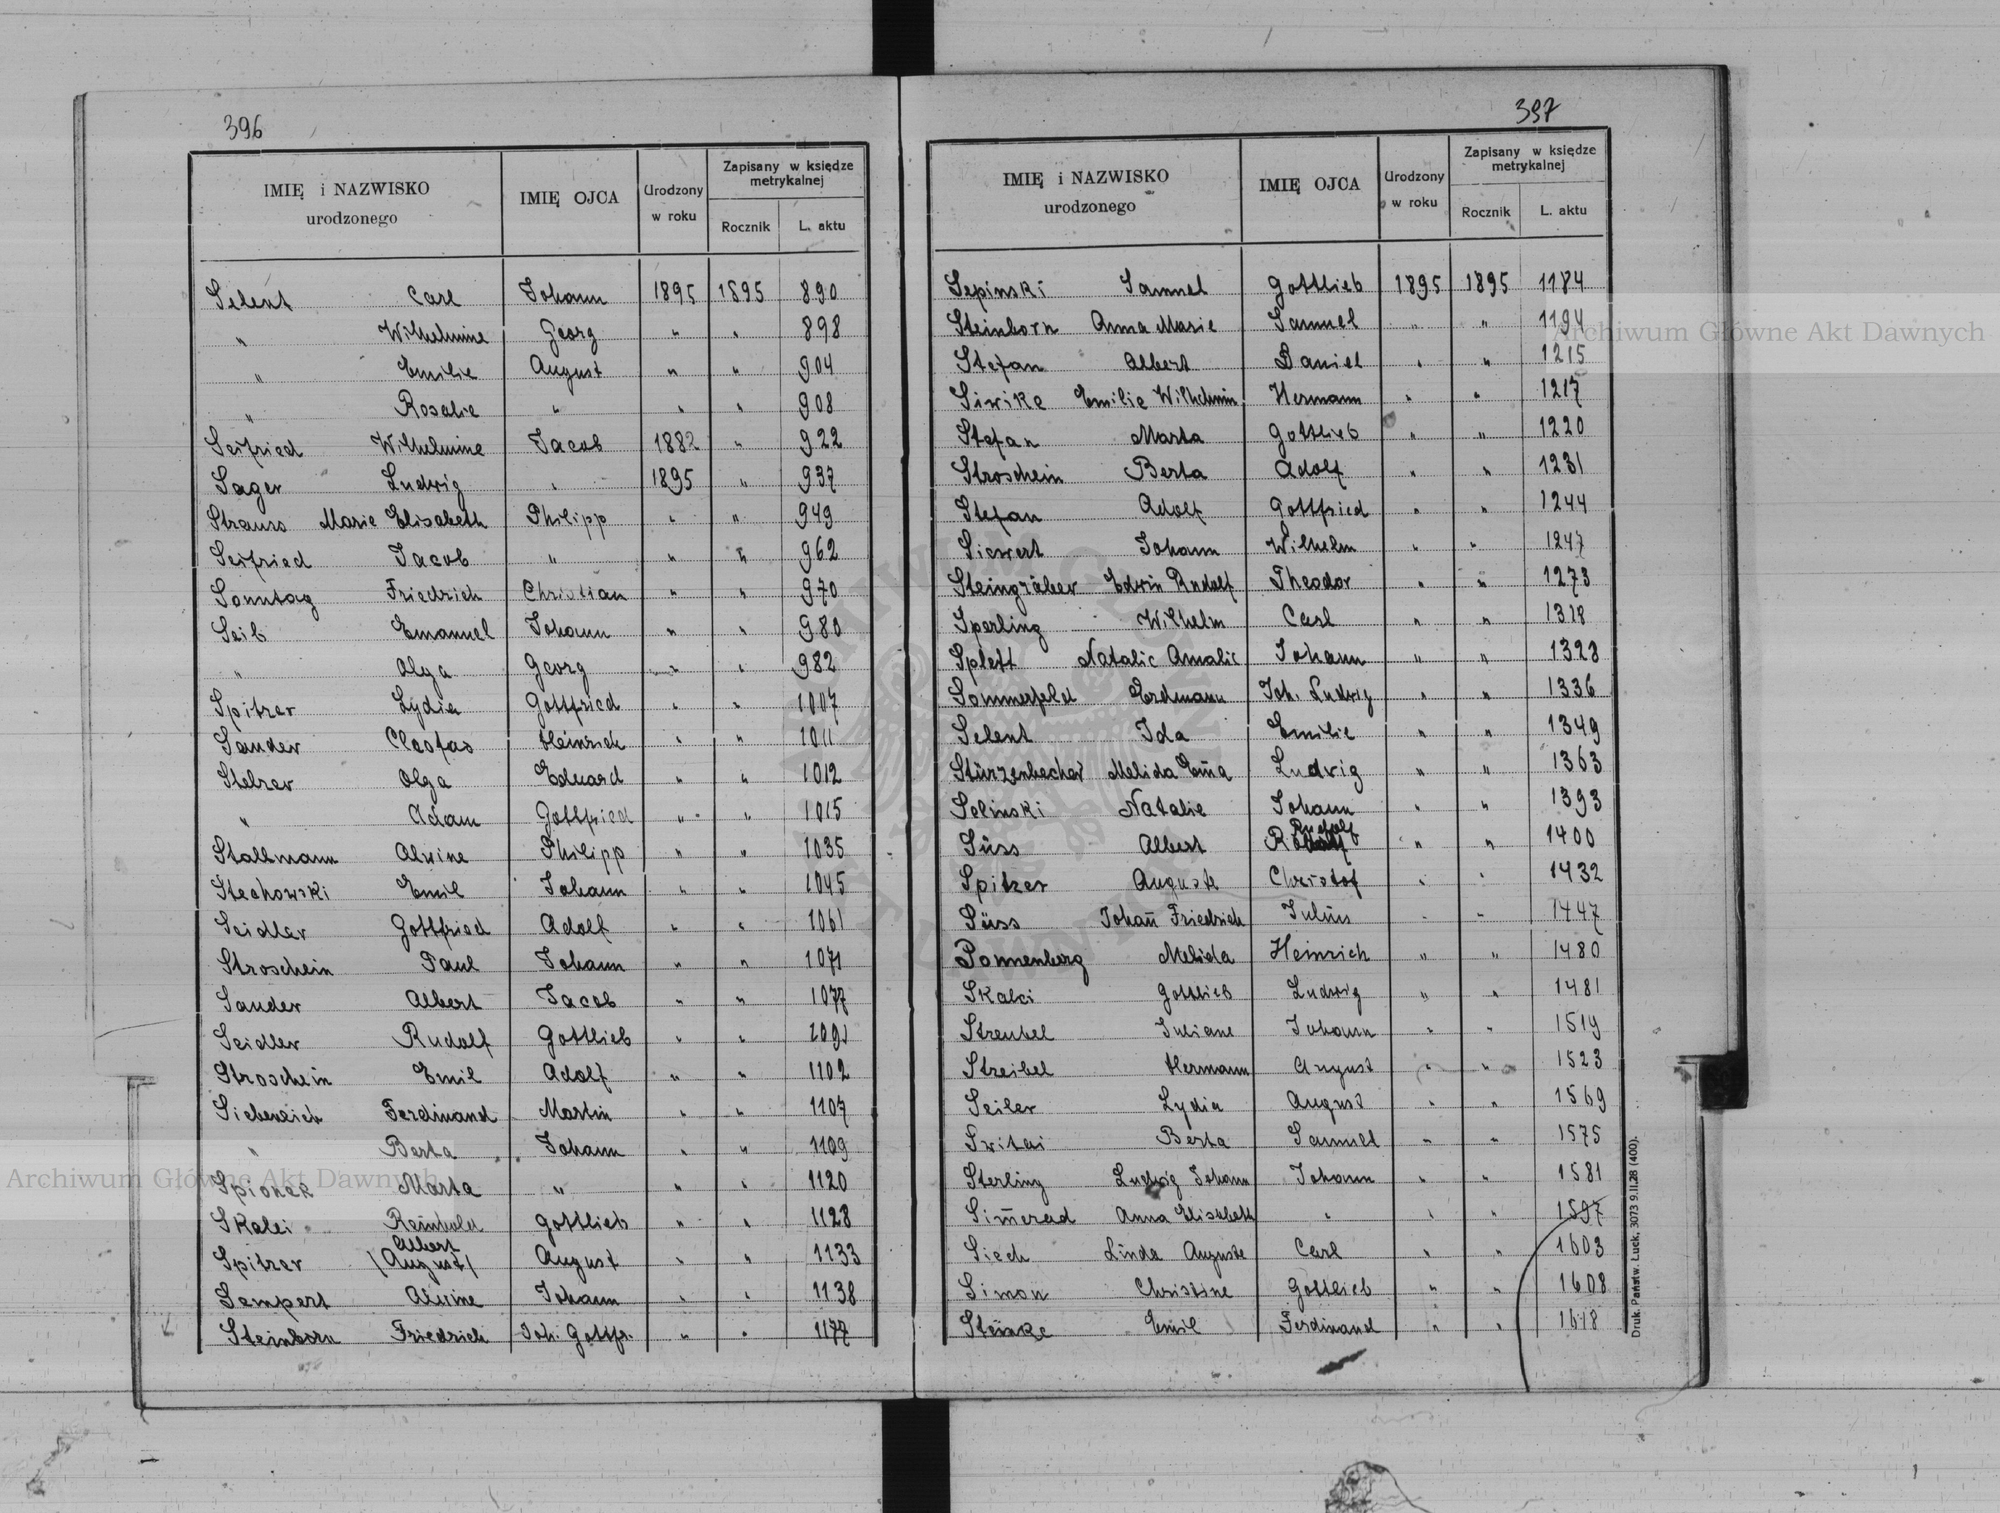 396
IMIĘ i NAZWISKO urodzonego IMIĘ OJCA Urodzony w roku Zapisany w księdze metrykalnej Rocznik L. aktu
Selent Carl Johann 1895 1895 890
" Wilhelmine Georg " " 898
" Emilie August " " 904
" Rosalie " " " 908
Seifried Wilhelmine Jacob 1882 " 922
Sager Ludwig " 1895 " 937
Strauss Marie Elisabeth Philipp " " 949
Seifried Jacob " " " 962
Sonntag Friedrich Christian " " 970
Seib Emanuel Johann " " 980
" Olga Georg " " 982
Spitzer Lydia Gottfried " " 1007
Sander Cleofas Heinrich " " 1011
Stelzer Olga Eduard " " 1012
" Adam Gottfried " " 1015
Stallmann Alwine Philipp " " 1035
Stechowski Emil Johann " " 1045
Seidler Gottfried Adolf " " 1061
Stroschein Paul Johann " " 1071
Sander Albert Jacob " " 1077
Seidler Rudolf Gottlieb " " 1091
Stroschein Emil Adolf " " 1102
Siebeneich Ferdinand Martin " " 1107
" Berta Johann " " 1109
Spionek Marta " " " 1120
Skalei Reinhold Gottlieb " " 1128
Spitzer Albert (August) August " " 1133
Sempert Alwine Johann " " 1138
Steinborn Friedrich Joh. Gottfr. " " 1177
397
IMIĘ i NAZWISKO urodzonego IMIĘ OJCA Urodzony w roku Zapisany w księdze metrykalnej Rocznik L. aktu
Sepinski Samuel Gottlieb 1895 1895 1184
Steinborn Anna Marie Samuel " " 1194
Stefan Albert Daniel " " 1215
Siwike Emilie Wilhelmin. Hermann " " 1217
Stefan Marta Gottlieb " " 1220
Stroschein Berta Adolf " " 1231
Stefan Adolf Gottfried " " 1244
Siewert Johann Wilhelm " " 1247
Steingräber Edwin Rudolf Theodor " " 1273
Sperling Wilhelm Carl " " 1318
Splett Natalie Amalie Johann " " 1328
Sommerfeld Erdmann Joh. Ludwig " " 1336
Selent Ida Emilie " " 1349
Stürzenbecher Melida Em̄a Ludwig " " 1363
Selinski Natalie Johann " " 1393
Süss Albert Rudolf " " 1400
Spitzer Auguste Christof " " 1432
Süss Johan̄ Friedrich Julius " " 1447
Ponnenberg Melida Heinrich " " 1480
Skalei Gottlieb Ludwig " " 1481
Streubel Juliane Johann " " 1519
Streibel Hermann August " " 1523
Seiler Lydia August " " 1569
Switai Berta Samuel " " 1575
Sterling Ludwig Johann Johann " " 1581
Sim̄erad Anna Elisabeth " " " 1597
Siech Linda Auguste Carl " " 1603
Simon Christine Gottlieb " " 1608
Steinke Emil Ferdinand " " 1618
Druk. Państw. Łuck, 3073 9.II.28 (400).
Archiwum Główne Akt Dawnych
Archiwum Główne Akt Dawnych